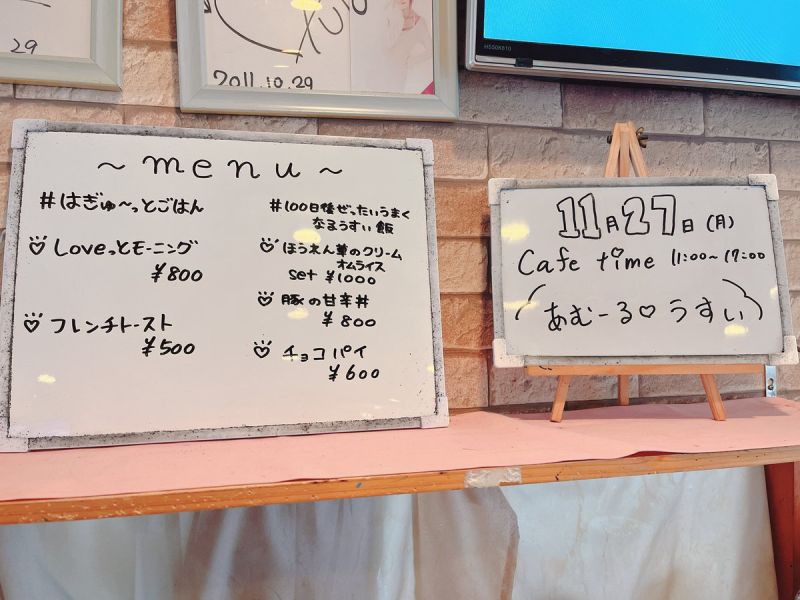 29
2011.10.29
HS50K610
～menu～
#はぎゅ～っとごはん
Loveっとモーニング
¥800
フレンチトースト
¥500
#100日後ぜったいうまく
なるうすい飯
ほうれん草のクリーム
オムライス
set ¥1000
豚の甘辛丼
¥800
チョコパイ
¥600
11月27日(月)
Cafe time 11:00~17:00
(あむーる♡うすい)